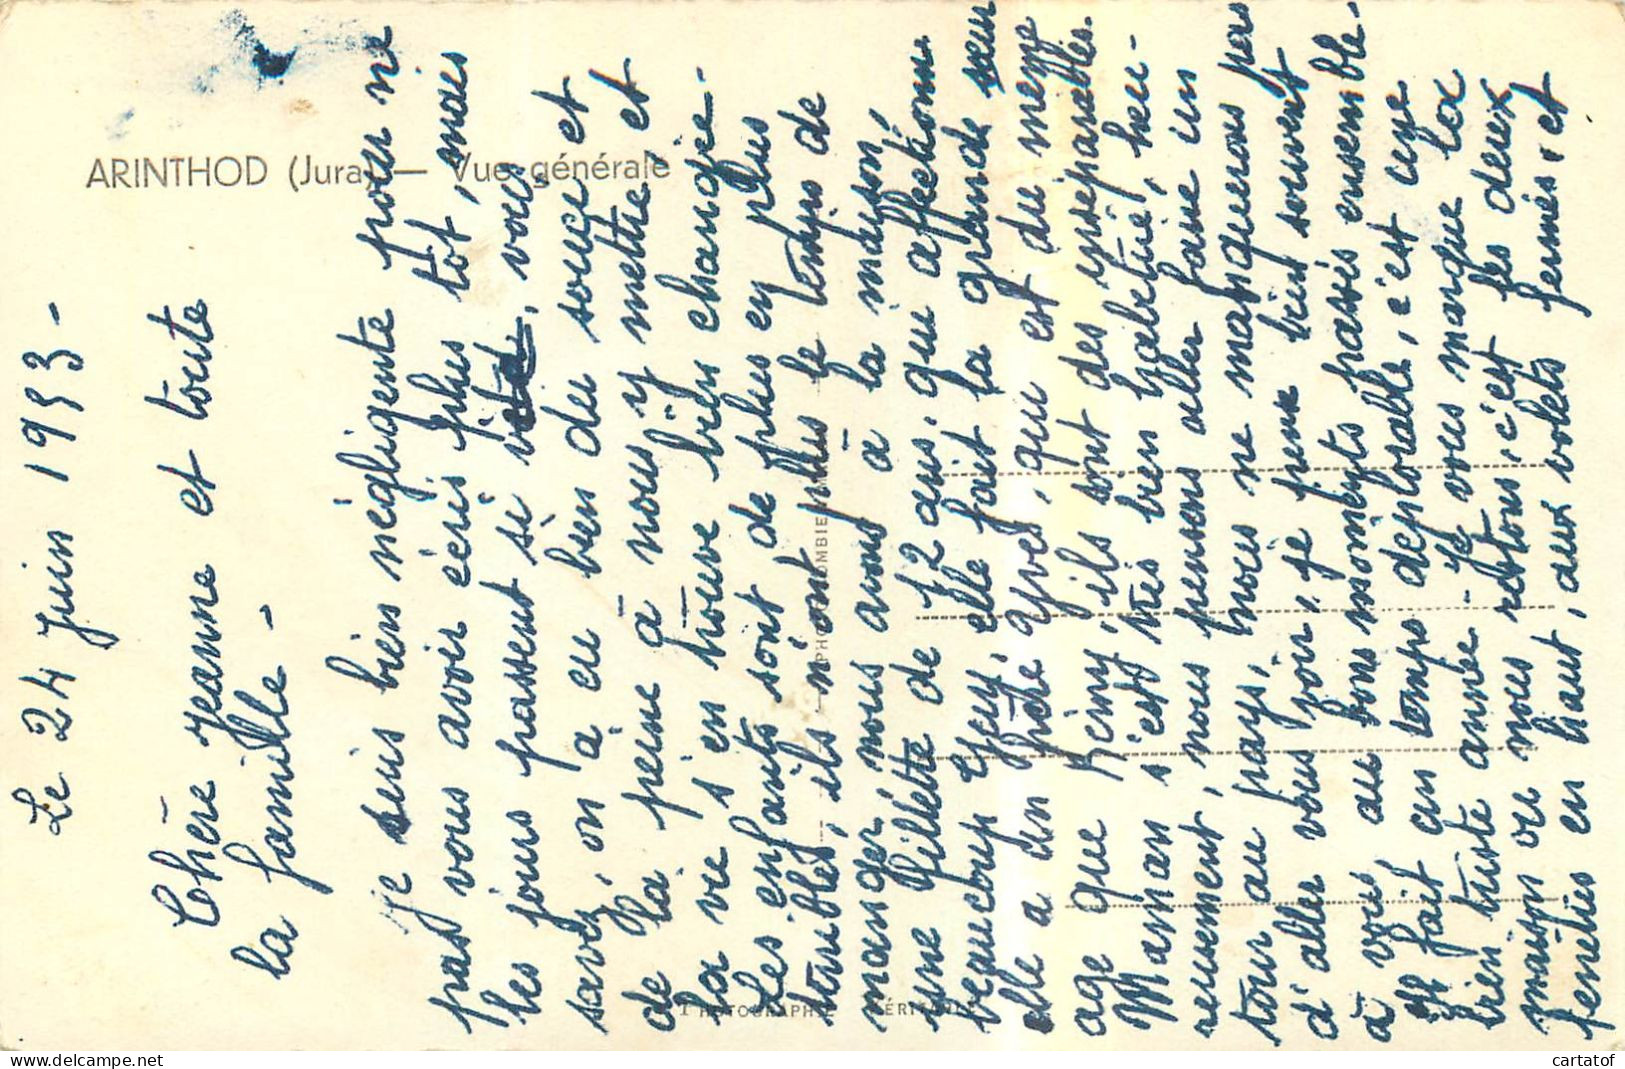 ARINTHOD (Jura) — Vue générale
Le 24 Juin 1953 -
Chère Jeanne et toute
la famille -
Je suis bien négligente pour ne
pas vous avoir écris plus tôt, mais
les jours passent si vite, vous
savez, on a eu bien du soucis et
de la peine à nous y mettre, et
la vie s'en trouve bien changée -
Les enfants sont de plus en plus
terribles, ils n'ont plus le temps de
manger, nous avons à la maison,
une fillette de 12 ans, qui affectionne
beaucoup Guy, elle fait la grande sœur
elle a un frère, Yves, qui est du même
age que Rémy, ils sont des inséparables.
Maman s'est très bien habituée, heu-
reusement, nous pensons aller faire un
tour au pays, nous ne manquerons pas
d'aller vous voir, je pense bien souvent
à vous, au bons moments passés ensemble -
Il fait un temps déplorable, c'est une
bien triste année - Je vous marque la
maison ou nous restons, c'est les deux
fenêtres en haut, aux volets fermés, et
PHOTOGRAPHIE VÉRITABLE
PHOT. COMBIER
cartatof